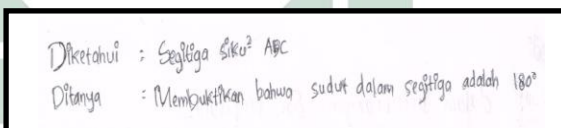 Diketahui : Segitiga siku² ABC
Ditanya : Membuktikan bahwa sudut dalam segitiga adalah 180°